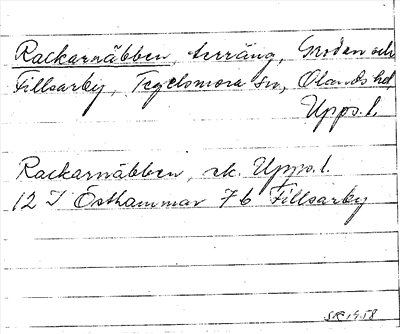 Rackarnäbben, terräng, Groden och
Fillsarby, Tegelsmora sn, Olands hd,
Upps.l.
Rackarnäbben, ek. Upps.l.
12 I Östhammar 7 b Fillsarby
SR 1958